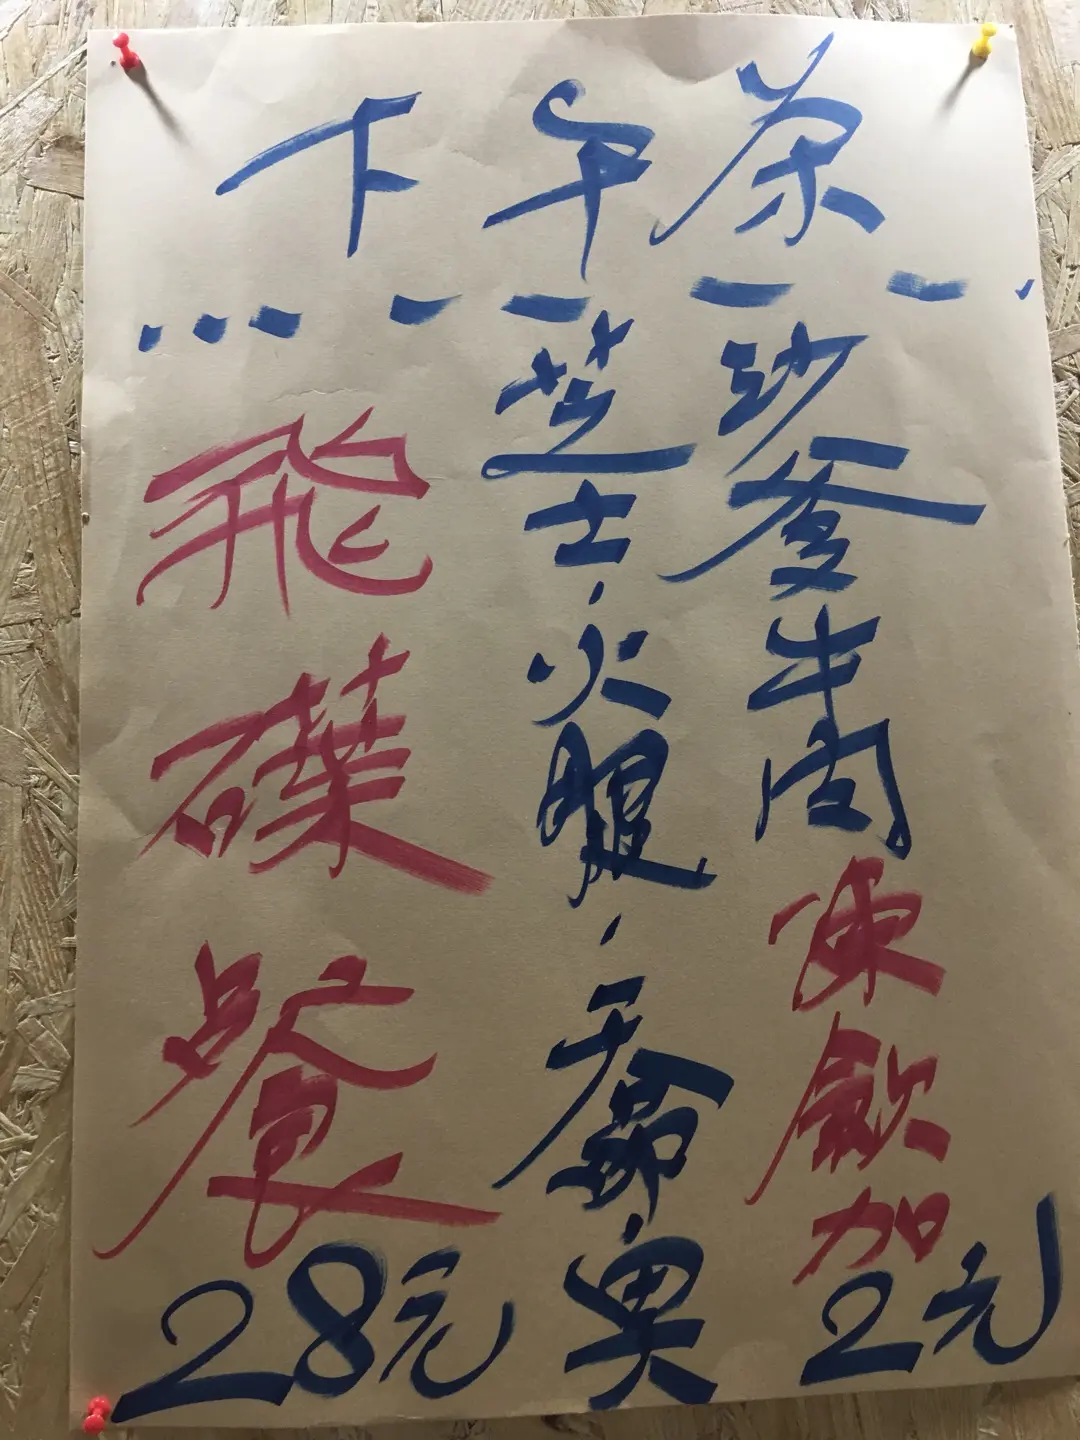 下午茶
飛碟餐28元
芝士,火腿,吞那魚
沙爹牛肉
凍飲加2元